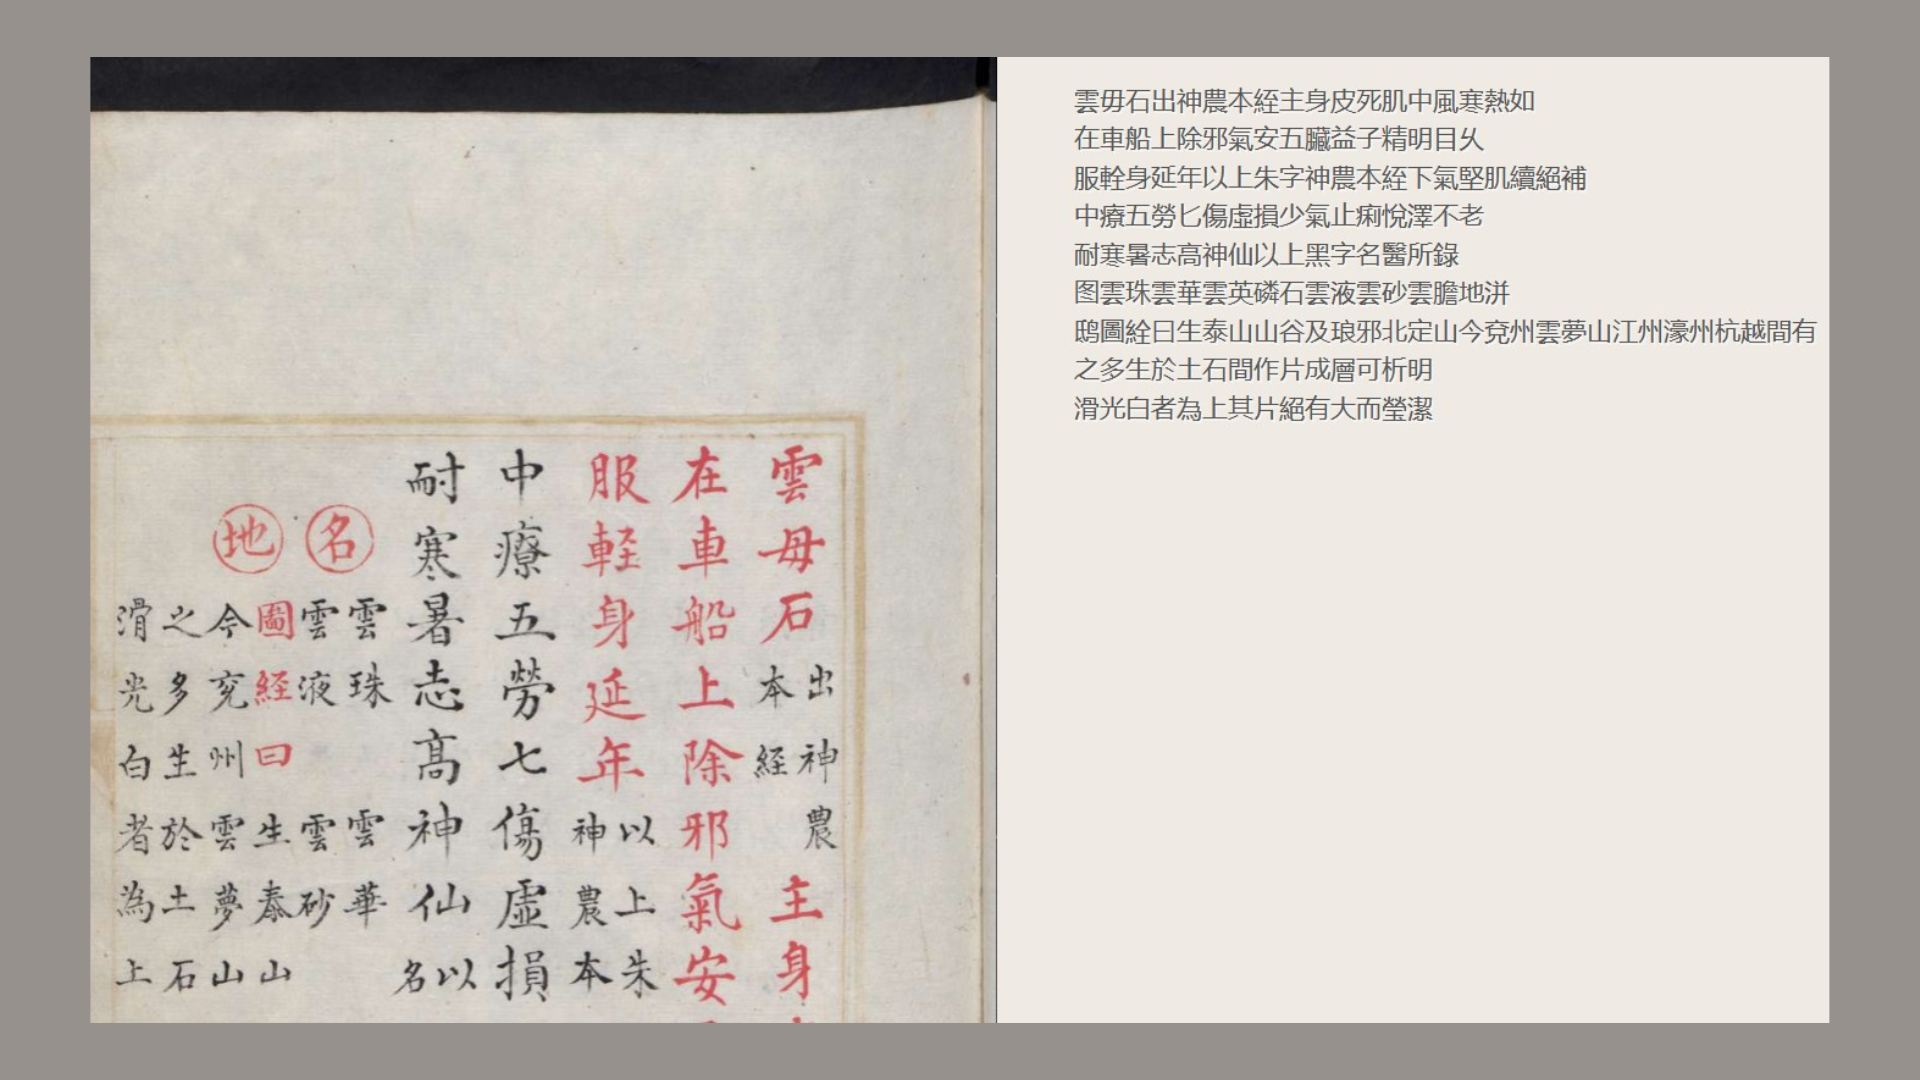 雲母石出神農本経主身
在車船上除邪氣安
服軽身延年以上朱神農本
中療五勞七傷虛損
耐寒暑志高神仙以名
名
雲珠雲華
雲液雲砂
地
圖経曰生泰山
今兗州雲夢山
之多生於土石
滑光白者為上
雲毋石出神農本絰主身皮死肌中風寒熱如
在車船上除邪氣安五臟益子精明目乆
服輇身延年以上朱字神農本絰下氣堅肌續絕補
中療五勞匕傷虛損少氣止痢悅澤不老
耐寒暑志高神仙以上黑字名醫所錄
图雲珠雲華雲英磷石雲液雲砂雲膽地洴
鸱圖絟曰生泰山山谷及琅邪北定山今兗州雲夢山江州濠州杭越間有
之多生於土石間作片成層可析明
滑光白者為上其片絕有大而瑩潔